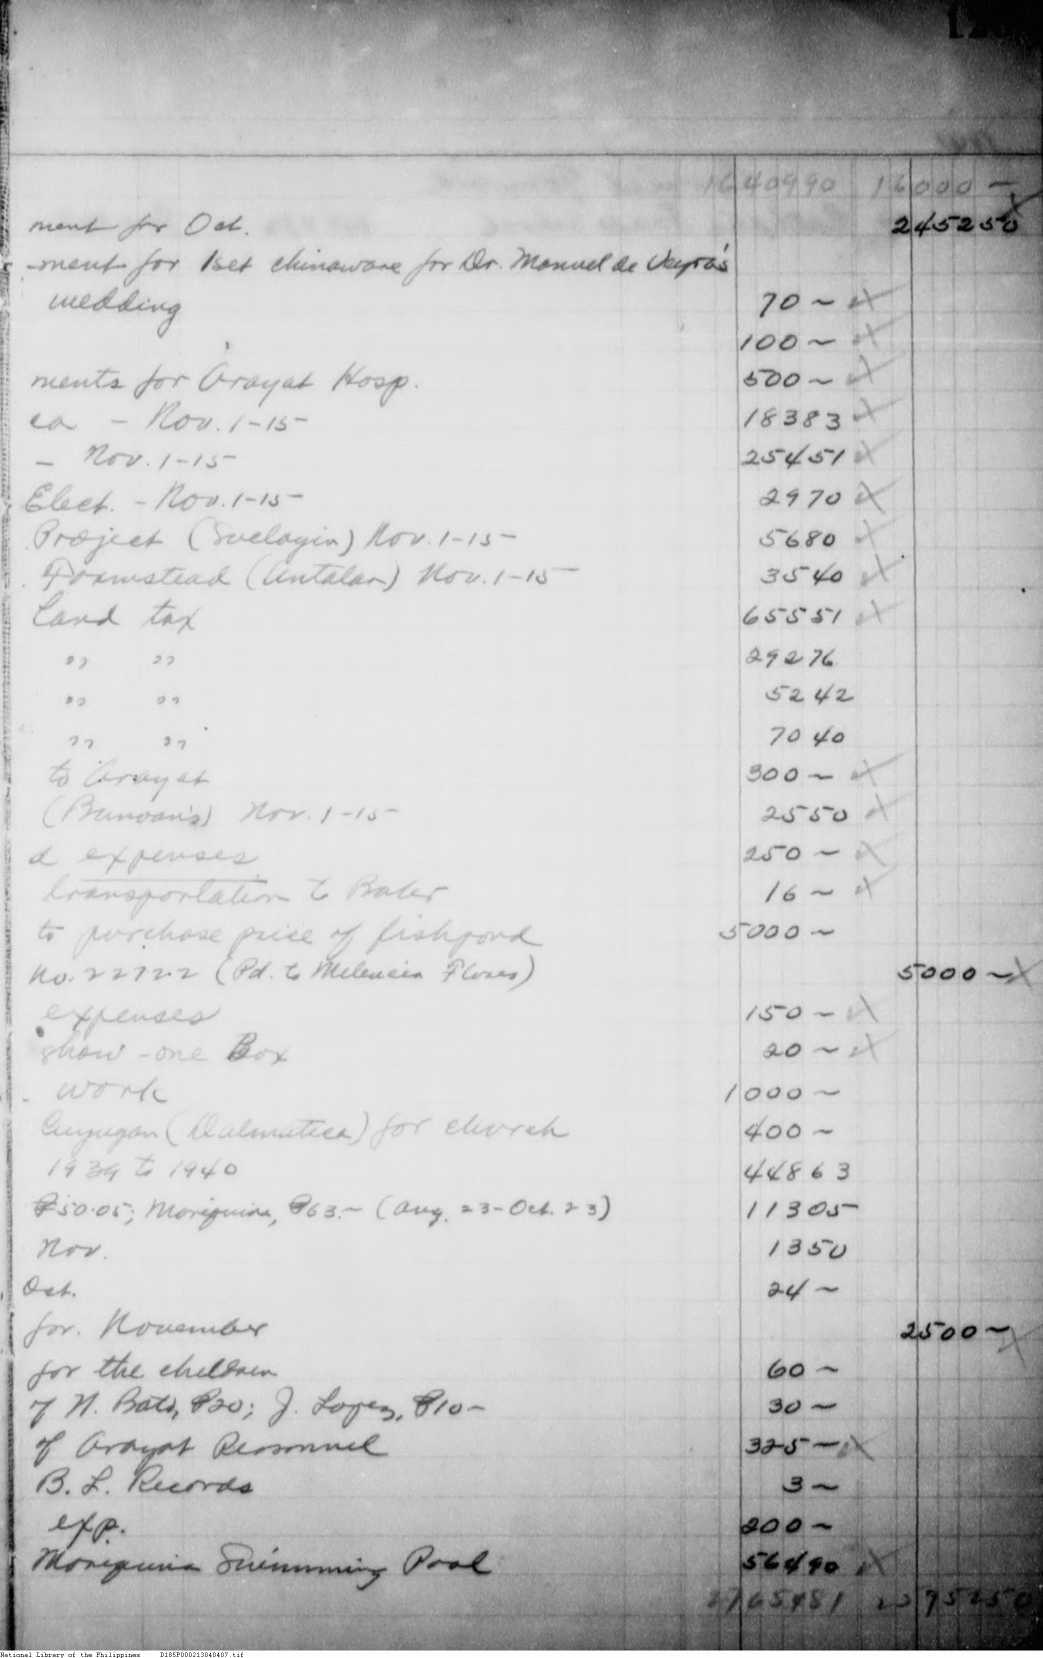 1640990 16000 —
ment for Oct. 245250
ment for 1set chinaware for Dr. Manuel de Veyra's
wedding 70 ~
100 ~
ments for Arayat Hosp. 500 ~
ea - Nov. 1-15 18383
- Nov. 1-15 25451
Elect. - Nov. 1-15 2970
Project ( ) Nov. 1-15 5680
Farmstead (Antalan) Nov. 1-15 3540
Land tax 65551
" " 29276
" " 5242
" " 7040
to Arayat 300 ~
Nov. 1-15 2550
d expenses 250 ~
transportation to Baler 16 ~
to purchase price of fishpond 5000 ~
No. 22722 (Pd. to Melencia Flores) 5000 ~
expenses 150 ~
show - one Box 20 ~
work 1000 ~
(Dalmatica) for church 400 ~
1939 to 1940 44863
₱50.05; Mariquina, ₱63.~ (Aug. 23-Oct. 23) 11305
Nov. 1350
Oct. 24 ~
for November 2500 ~
for the children 60 ~
of N. Bato, ₱20; J. Lopez, ₱10- 30 ~
of Arayat Personnel 325 ~
B. L. Records 3 ~
exp. 200 ~
Mariquina Swimming Pool 56490
2765481 2375250
National Library of the Philippines D185P000213040407.tif